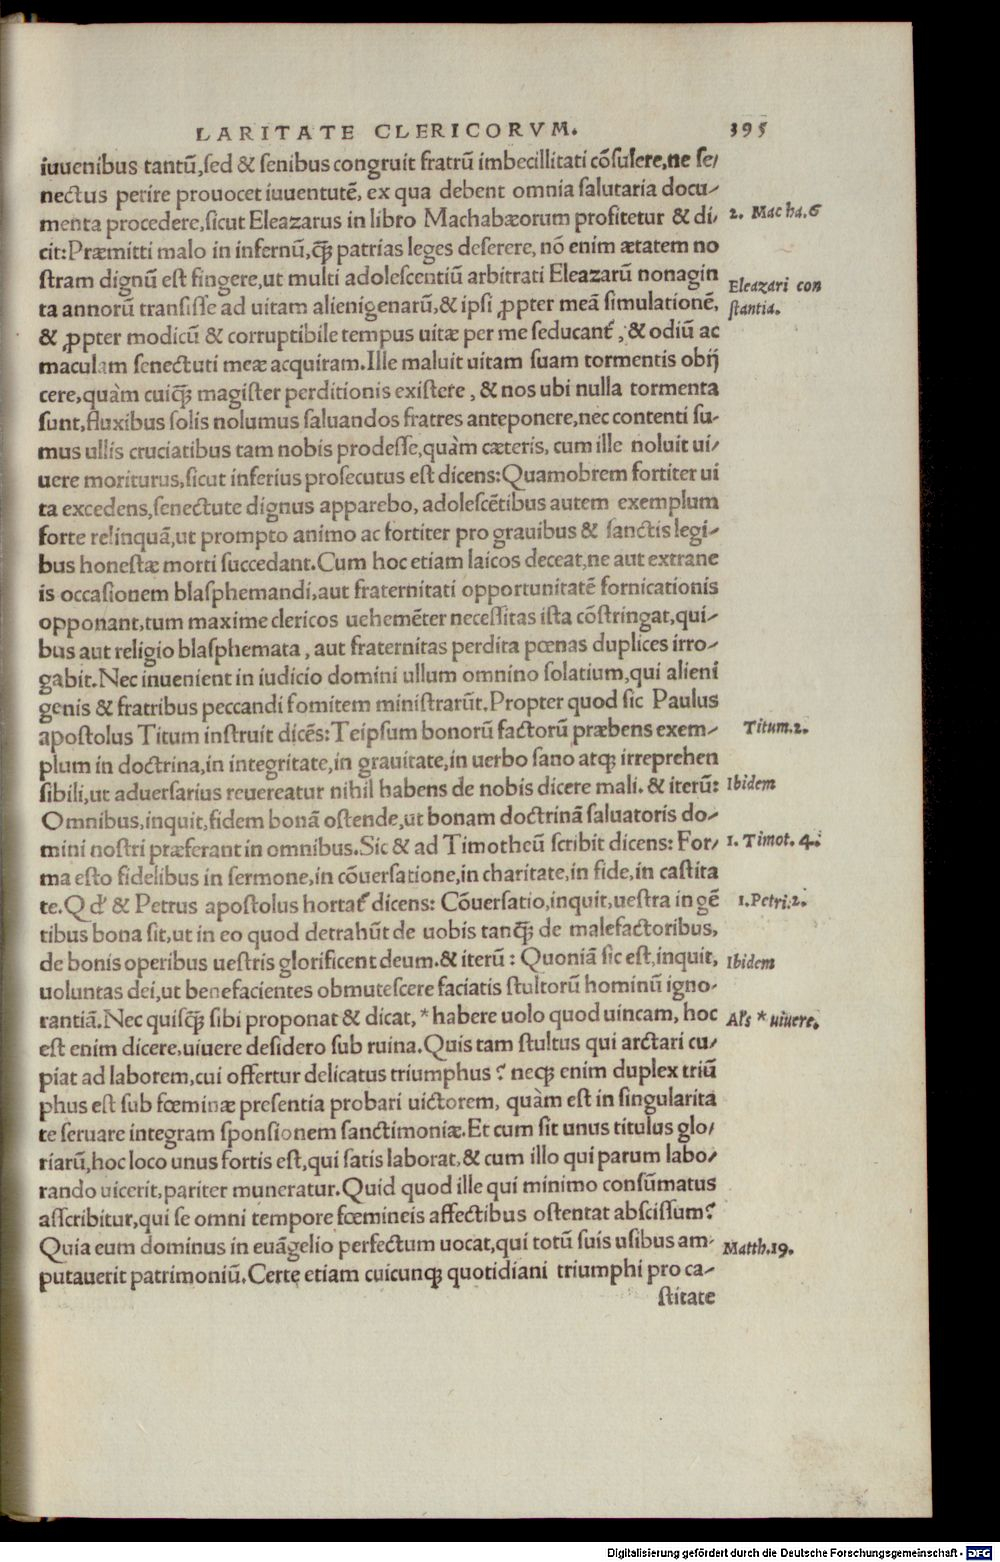 LARITATE CLERICORVM. 395
iuuenibus tantū,sed & senibus congruit fratrū imbecillitati cōsulere,ne se/
nectus perire prouocet iuuentutē, ex qua debent omnia salutaria docu/
menta procedere,sicut Eleazarus in libro Machabæorum profitetur & di/
2. Macha.6
cit:Præmitti malo in infernū,q̃ꝫ patrias leges deserere, nō enim ætatem no
stram dignū est fingere,ut multi adolescentiū arbitrati Eleazarū nonagin
Eleazari con
ta annorū transisse ad uitam alienigenarū,& ipsi ꝓpter meā simulationē,
stantia.
& ꝓpter modicū & corruptibile tempus uitæ per me seducant᷑, & odiū ac
maculam senectuti meæ acquiram.Ille maluit uitam suam tormentis obij
cere,quàm cuiq̃ꝫ magister perditionis existere, & nos ubi nulla tormenta
sunt,fluxibus solis nolumus saluandos fratres anteponere,nec contenti su/
mus ullis cruciatibus tam nobis prodesse,quàm cæteris, cum ille noluit ui/
uere moriturus,sicut inferius prosecutus est dicens:Quamobrem fortiter ui
ta excedens,senectute dignus apparebo, adolescētibus autem exemplum
forte relinquā,ut prompto animo ac fortiter pro grauibus & sanctis legi/
bus honestæ morti succedant.Cum hoc etiam laicos deceat,ne aut extrane
is occasionem blasphemandi,aut fraternitati opportunitatē fornicationis
opponant,tum maxime clericos uehemēter necessitas ista cōstringat,qui/
bus aut religio blasphemata, aut fraternitas perdita pœnas duplices irro/
gabit.Nec inuenient in iudicio domini ullum omnino solatium,qui alieni
genis & fratribus peccandi fomitem ministrarūt.Propter quod sic Paulus
apostolus Titum instruit dicēs:Teipsum bonorū factorū præbens exem/
Titum.2.
plum in doctrina,in integritate,in grauitate,in uerbo sano atqꝫ irreprehen
sibili,ut aduersarius reuereatur nihil habens de nobis dicere mali. & iterū:
Ibidem
Omnibus,inquit,fidem bonā ostende,ut bonam doctrinā saluatoris do/
mini nostri præferant in omnibus.Sic & ad Timotheū scribit dicens: For/
1. Timot. 4.
ma esto fidelibus in sermone,in cōuersatione,in charitate,in fide,in castita
te.Qd' & Petrus apostolus hortat᷑ dicens: Cōuersatio,inquit,uestra in gē
1.Petri.2.
tibus bona sit,ut in eo quod detrahūt de uobis tanq̃ꝫ de malefactoribus,
de bonis operibus uestris glorificent deum.& iterū: Quoniā sic est,inquit,
Ibidem
uoluntas dei,ut benefacientes obmutescere faciatis stultorū hominū igno/
rantiā.Nec quisq̃ꝫ sibi proponat & dicat, *habere uolo quod uincam, hoc
Al's * uiuere.
est enim dicere,uiuere desidero sub ruina.Quis tam stultus qui arctari cu/
piat ad laborem,cui offertur delicatus triumphus? neqꝫ enim duplex triū
phus est sub fœminæ presentia probari uictorem, quàm est in singularita
te seruare integram sponsionem sanctimoniæ.Et cum sit unus titulus glo/
riarū,hoc loco unus fortis est,qui satis laborat,& cum illo qui parum labo/
rando uicerit,pariter muneratur.Quid quod ille qui minimo consūmatus
asscribitur,qui se omni tempore fœmineis affectibus ostentat abscissum?
Quia eum dominus in euāgelio perfectum uocat,qui totū suis usibus am/
Matth.19.
putauerit patrimoniū.Certę etiam cuicunqꝫ quotidiani triumphi pro ca/
stitate
Digitalisierung gefördert durch die Deutsche Forschungsgemeinschaft - DFG